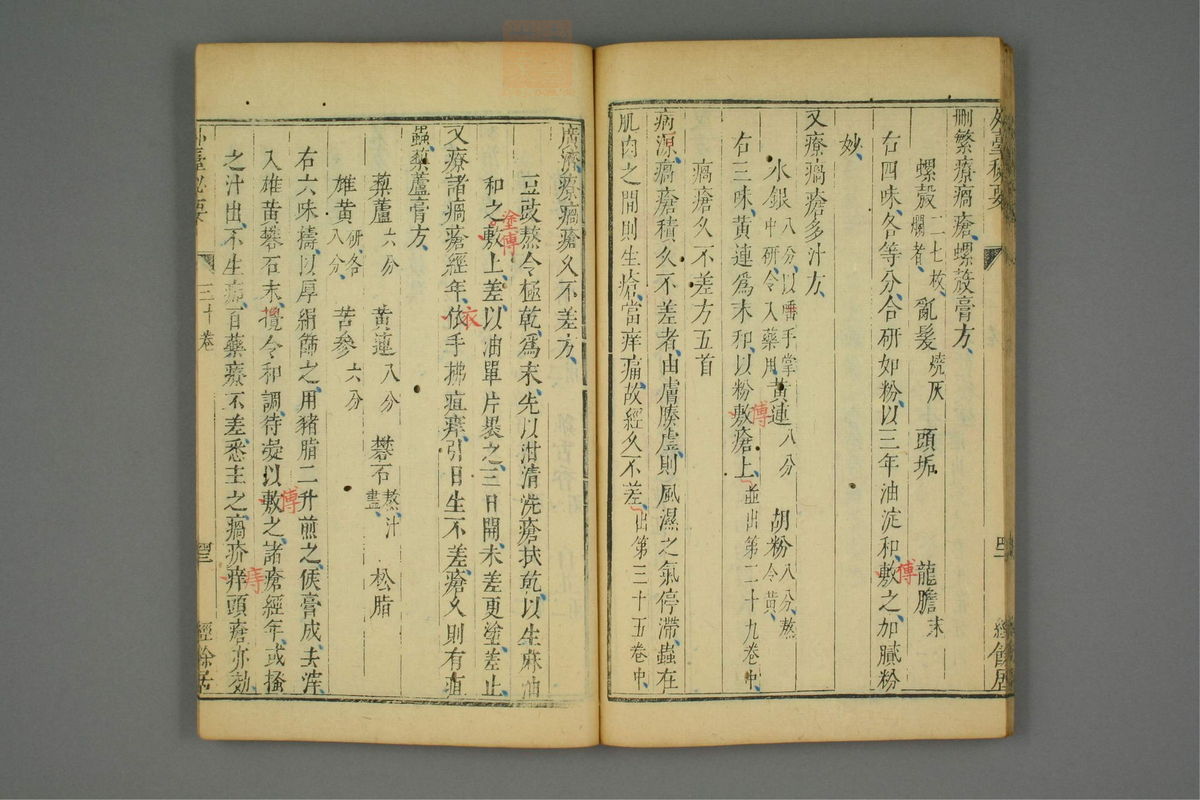 外臺秘要
經餘居
刪繁療瘑瘡螺殼膏方
螺殼二七枚爛者 亂髮燒灰 頭垢 龍膽末
右四味各等分合研如粉以三年油淀和敷之加膩粉
傅
妙
又療瘑瘡多汁方
水銀八分以唾手掌中研令入藥用 黃連八分 胡粉八分熬令黃
右三味黃連爲末和以粉敷瘡上並出第二十九卷中
傅
瘑瘡久不差方五首
病源瘑瘡積久不差者由膚腠虛則風濕之氣停滯蟲在
肌肉之間則生瘡當痒痛故經久不差出第三十五卷中
廣濟療瘑瘡久不差方
豆豉熬令極乾爲末先以泔清洗瘡拭乾以生麻油
和之敷上差以油單片裹之三日開未差更塗差止
塗傅
又療諸瘑瘡經年依手拂疽癢引日生不差瘡久則有疽
衣
蟲藜蘆膏方
藜蘆六分 黃連八分 礬石熬汁盡 松脂
雄黃研各八分 苦參六分
右六味擣以厚絹篩之用豬脂二升煎之候膏成去滓
入雄黃礬石末攪令和調待凝以敷之諸瘡經年或搔
傅
之汁出不生痂百藥療不差悉主之瘑疥痒頭瘡亦効
痔
外臺秘要
三十卷
經餘居